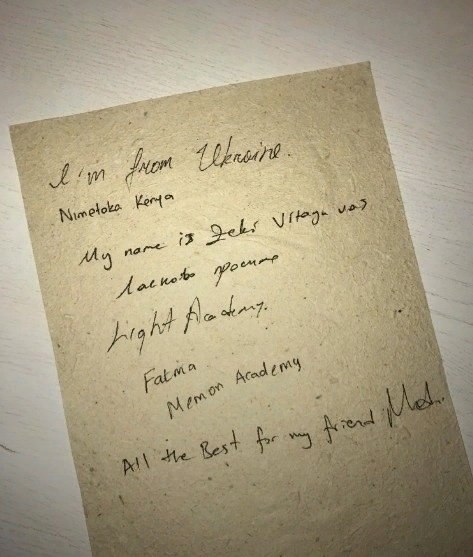 I'm from Ukraine.
Nimetoka Kenya
My name is Zeki Vitayu vas
Ласково просимо
Light Academy.
Fatma
Memon Academy
All the Best for my friend